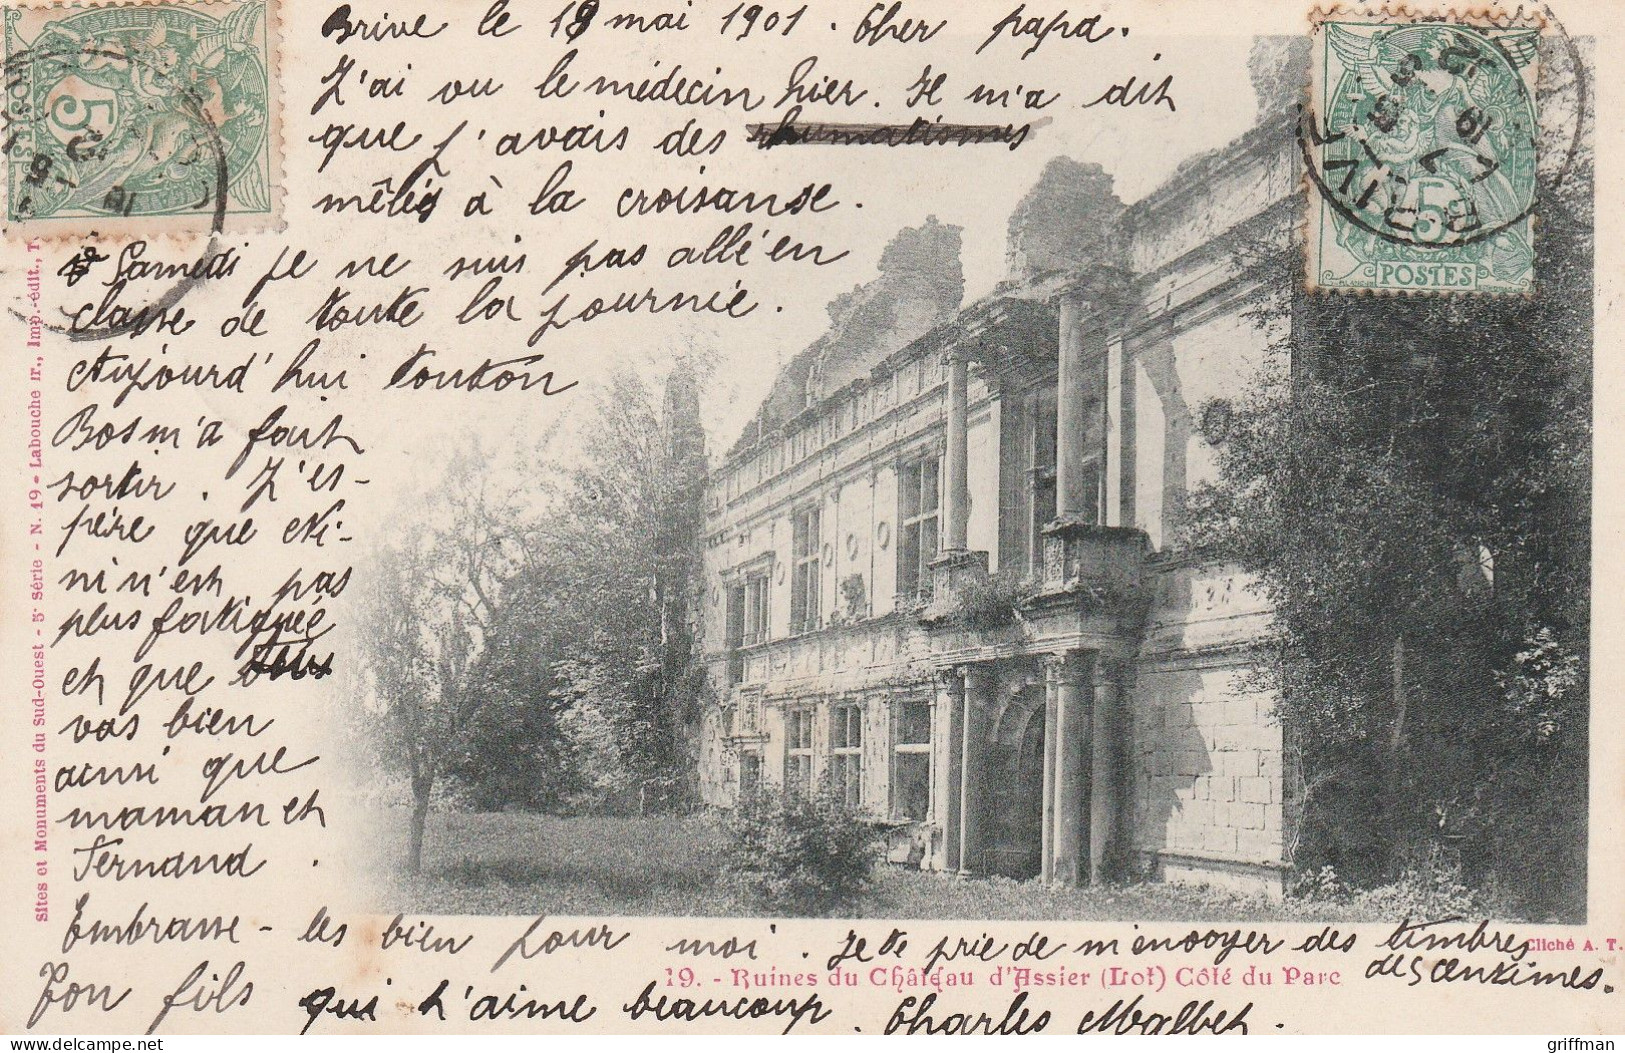 Brive le 18 mai 1901. Cher papa.
J'ai vu le médecin hier. Il m'a dit
que j'avais des rhumatismes
mêlés à la croisanse.
Samedi je ne suis pas allé en
classe de toute la journée.
Aujourd'hui tonton
Bos m'a fait
sortir. J'es-
père que Ni-
ni n'est pas
plus fatiguée
et que tous
vas bien
ainsi que
maman et
Fernand.
Embrasse-les bien pour moi. Je te prie de m'envoyer des timbres
de 5 centimes.
Ton fils qui t'aime beaucoup. Charles Malbet.
19. - Ruines du Château d'Assier (Lot) Côté du Parc
Cliché A. T.
Sites et Monuments du Sud-Ouest - 5e Série - N. 19 - Labouche fr., Imp.-édit., T
5
POSTES
5
BRIVE
griffman
delcampe.net